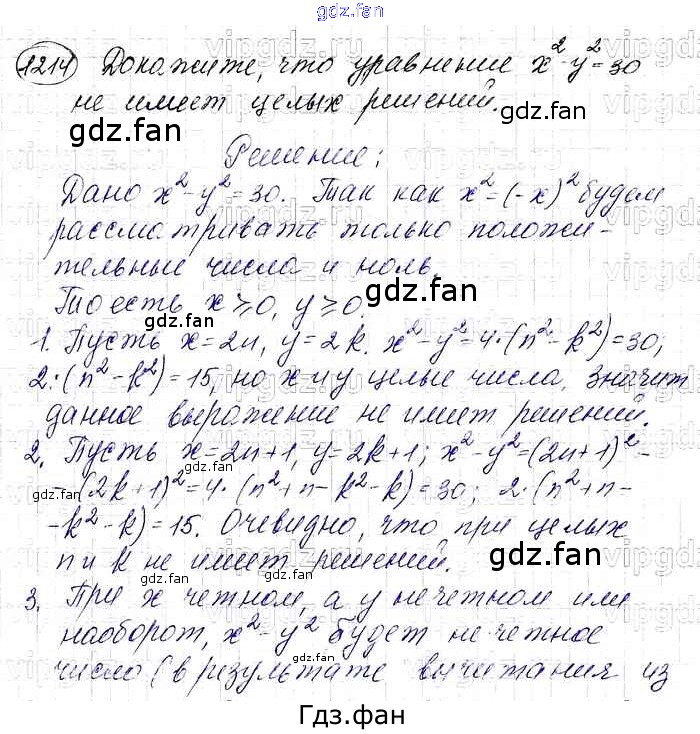 gdz.fan
1214 Докажите, что уравнение x²-y²=30
не имеет целых решений.
gdz.fan
gdz.fan
Решение:
Дано x²-y²=30. Так как x²=(-x)² будем
рассматривать только положи-
тельные числа и ноль.
gdz.fan
То есть x≥0, y≥0.
1. Пусть x=2n, y=2k. x²-y²=4·(n²-k²)=30;
2·(n²-k²)=15, но x и y целые числа, значит
данное выражение не имеет решений.
2. Пусть x=2n+1, y=2k+1; x²-y²=(2n+1)²-
-(2k+1)²=4·(n²+n-k²-k)=30; 2·(n²+n-
gdz.fan
-k²-k)=15. Очевидно, что при целых
n и k не имеет решений.
gdz.fan
gdz.fan
3. При x четном, а y нечетном или
наоборот, x²-y² будет нечетное
число (в результате вычитания из
gdz.fan
Гдз.фан